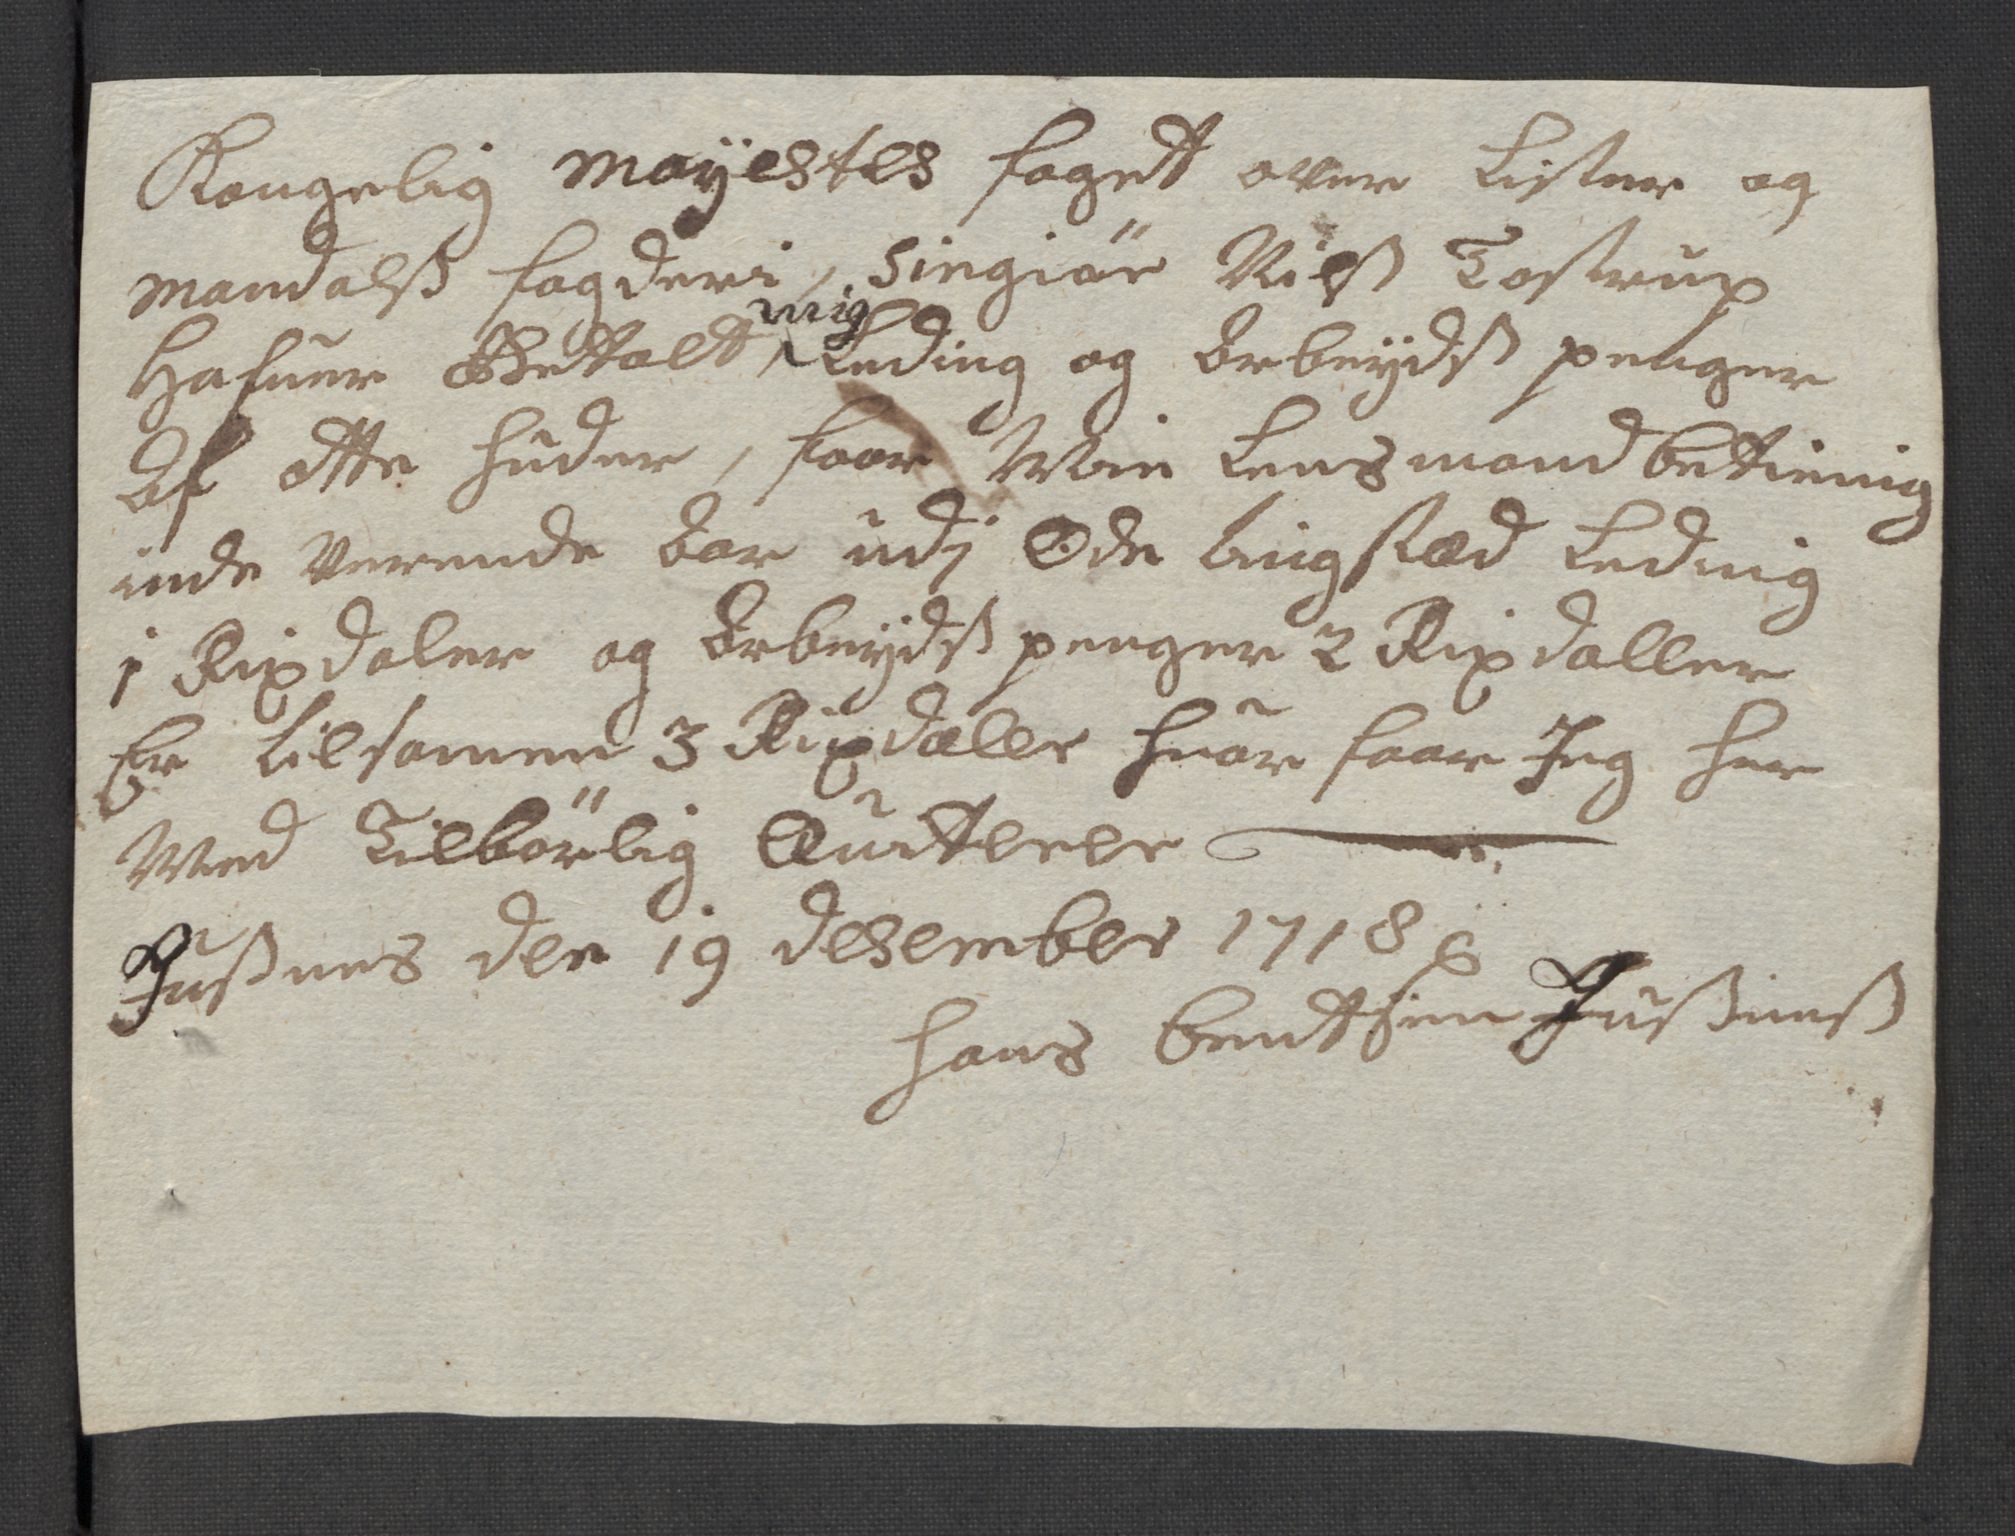 Kongelig mayestes fogett over Lister og
Mandalß fogderi, Singiör Nielß Tostrup
Hafuer Bettalt mig Leding og Arbeydß penger
Af otte huder, foor Min Lensmand bettienig
inde Verende Aar udj Øde Lensmand Lednig
1 Rixdaler og Arbeydß penger 2 Rixdaller
Er tilsamen 3 Rixdaller huor foor Jeg her
Med Tilbörlig Quitterer
Jußnes den 19 desember 1718
Hans bendtsen Jußneß